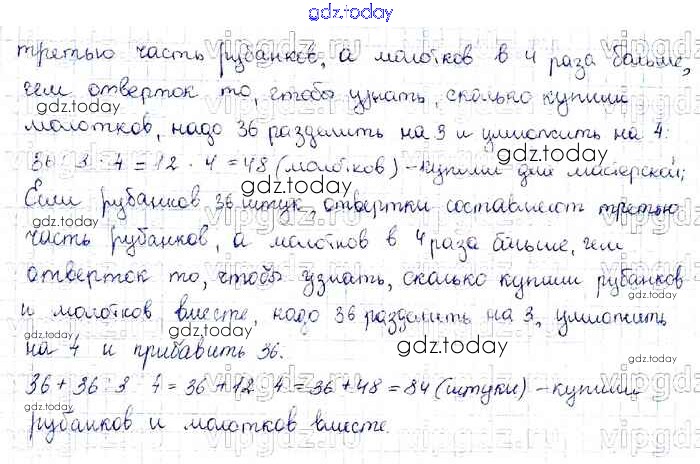 gdz.today
третью часть рубанков, а молотков в 4 раза больше,
чем отверток то, чтобы узнать, сколько купили
gdz.today
gdz.today
молотков, надо 36 разделить на 3 и умножить на 4.
36 : 3 · 4 = 12 · 4 = 48 (молотков) – купили для мастерской;
gdz.today
Если рубанков 36 штук, отвертки составляют третью
gdz.today
часть рубанков, а молотков в 4 раза больше, чем
отверток то, чтобы узнать, сколько купили рубанков
и молотков вместе, надо 36 разделить на 3, умножить
gdz.today
на 4 и прибавить 36.
gdz.today
36 + 36 : 3 · 4 = 36 + 12 · 4 = 36 + 48 = 84 (штуки) – купили
gdz.today
рубанков и молотков вместе.